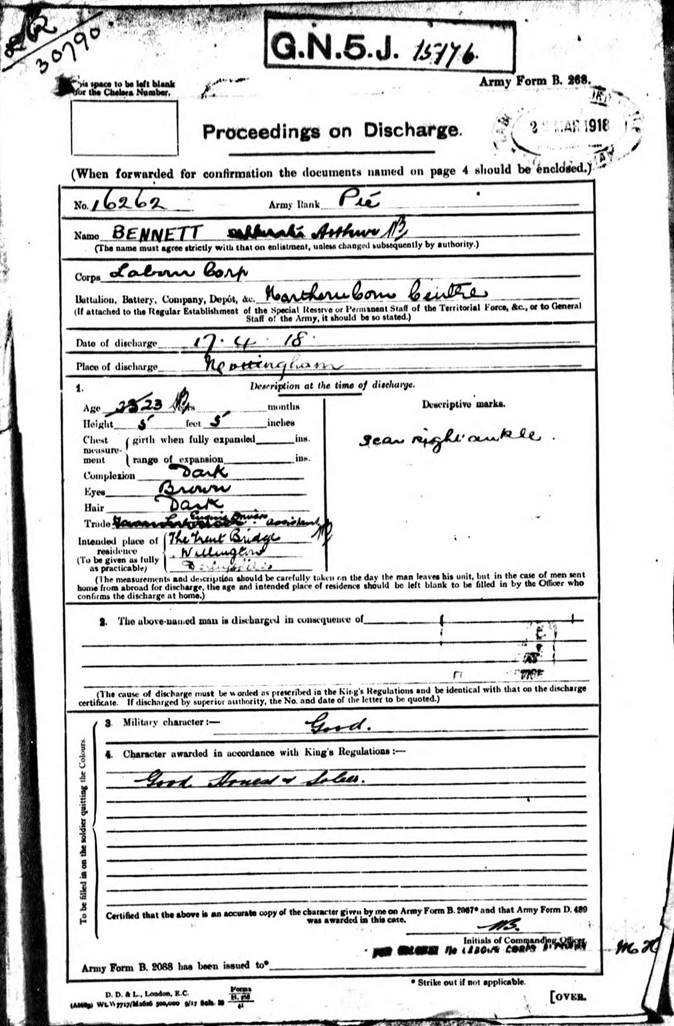 30790
G.N.5.J. 15176.
Army Form B. 268.
his space to be left blank
for the Chelsea Number.
2 MAR 1918
Proceedings on Discharge.
(When forwarded for confirmation the documents named on page 4 should be enclosed.)
No. 16262 Army Rank Pte
Name BENNETT Arthur
(The name must agree strictly with that on enlistment, unless changed subsequently by authority.)
Corps Labour Corp
Battalion, Battery, Company, Depôt, &c. Northern Com Centre
(If attached to the Regular Establishment of the Special Reserve or Permanent Staff of the Territorial Force, &c., or to General
Staff of the Army, it should be so stated.)
Date of discharge 17. 4. 18.
Place of discharge Nottingham
1. Description at the time of discharge.
Age 23 months
Height 5 feet 5 inches
Chest measure-ment girth when fully expanded ins.
range of expansion ins.
Complexion Dark
Eyes Brown
Hair Dark
Trade Engine Driver assistant
Intended place of residence The Trent Bridge
Willington
(To be given as fully as practicable) Derbyshire
Descriptive marks.
Scar right ankle.
(The measurements and description should be carefully taken on the day the man leaves his unit, but in the case of men sent
home from abroad for discharge, the age and intended place of residence should be left blank to be filled in by the Officer who
confirms the discharge at home.)
2. The above-named man is discharged in consequence of
(The cause of discharge must be worded as prescribed in the King's Regulations and be identical with that on the discharge
certificate. If discharged by superior authority, the No. and date of the letter to be quoted.)
To be filled in on the soldier quitting the Colours.
3 Military character:— Good.
4. Character awarded in accordance with King's Regulations:—
Good. Honest & Sober.
Certified that the above is an accurate copy of the character given by me on Army Form B. 2067* and that Army Form D. 480
was awarded in this case.
Initials of Commanding Officer.
Army Form B. 2088 has been issued to*
* Strike out if not applicable.
D. D. & L., London, E.C.
[OVER.